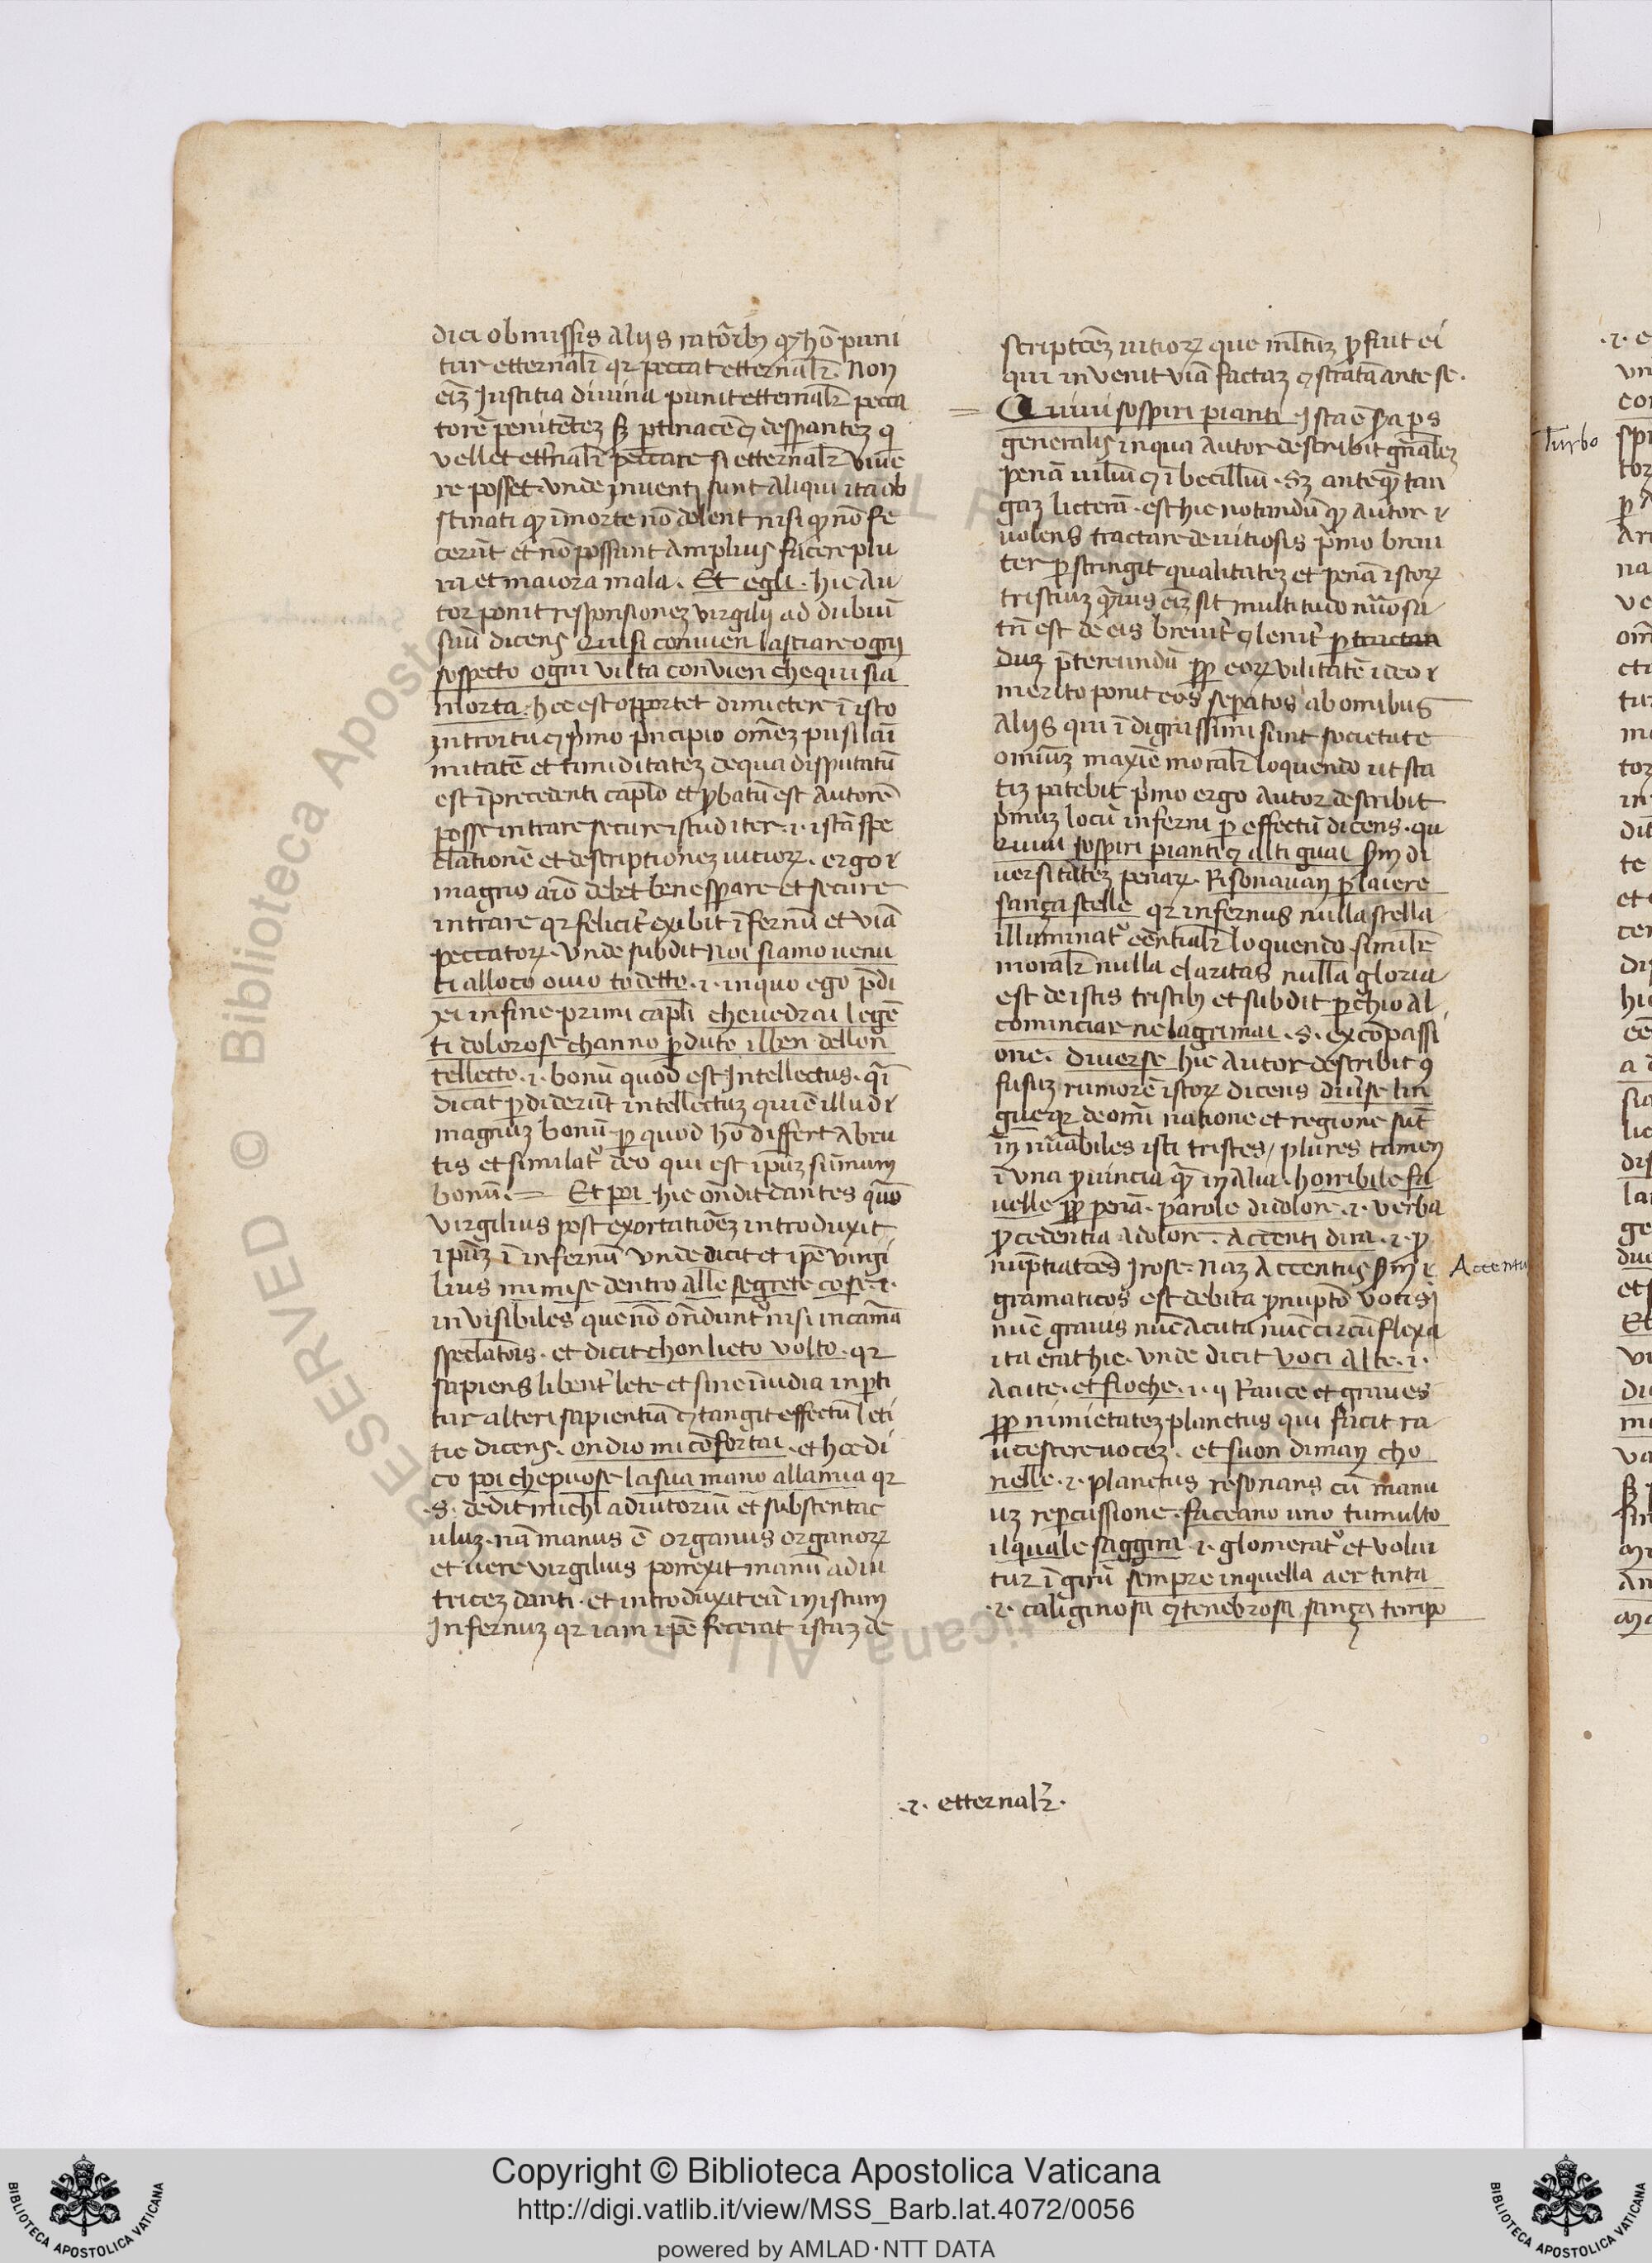 dici obmissis aliis ratōibꝫ ꝙ hō puni
tur etternalr̄ qꝛ peccat etternalr̄. Non
eīꝫ Iustitia divina punit etternalr̄ pecca
torē penitētēꝫ sꝫ ꝑtinacē ⁊ desꝑantēꝫ q̄
vellet etĩnalr̄ peccare si etternalr̄ viue
re posset. vnde inventi sunt aliqui ita ob
stinati ꝙ ī morte nō dolent nisi ꝙ nō fe
cerūt et nō possunt amplius facere plu
ra et maiora mala. Et egli. hic au
tor ponit responsionēꝫ virgilij ad dubiū
suū dicens Qui si convien lasciare ogni
sospecto ogni vilta convien che qui sia
morta. hec est opportet dimictere ī isto
introitu ⁊ p̄mo p̄ncipio om̄eꝫ pusilaī
mitatē et timiditateꝫ de qua disputatū
est ī precedenti capło et ꝓbatū est autorē
posse intrare secure istud iter .i. istā spe
clationē et descriptioneꝫ vitioꝝ. ergo
magno aīo debet bene sperare et secure
intrare qꝛ felicit̄ exibit īfernū et viā
peccatoꝝ. vnde subdit Noi siamo venu
ti alloco ovio to detto .i. in quo ego p̄di
xi in fine primi capłi che vedrai le gē
ti dolorose channo ꝑduto ilben dellon
tellecto .i. bonū quod est Intellectus. q̄ī
dicat ꝑdiderūt intellectuꝫ qui ē illud
magnuꝫ bonū ꝑ quod hō differt abru
tis et similat̄ deo qui est ip̄uꝫ sūmum
bonū. = Et poi hic on̄dit dantes quō
virgilius post exortatiōeꝫ introduxit
ip̄uꝫ ī infernū vnde dicit et ip̄e virgi
lius mi mise dentro alle segrete cose .i.
invisibiles que nō on̄dunt̄ nisi in caīa
speclatōis. et dicit chon lieto volto. qꝛ
sapiens libent̄ lete et sine īuidia inꝑti
tur alteri sapientiā ⁊ tangit effectū leti
tie dicens. ondio mi cōfortai. et hoc di
co poi che puose la sua mano alla mia qꝛ
.s. dedit michi adiutoriū et substentac
uluꝫ. nā manus ē organus organoꝝ
et vere virgilius porrexit manū adiu
triceꝫ danti. et introduxit eū in istum
Infernuꝫ qꝛ iam ip̄e fecerat istaꝫ de
scriptōeꝫ vitioꝝ que mltūꝫ ꝓfuit ei
qui invenit viā factaꝫ ⁊ stratā ante se.
= Quivi sospiri pianti Ista ē 2ᵃ ps
generalis in qua autor describit gn̄aleꝫ
penā viliū ⁊ ībecilliū. Sꝫ anteqꝫ tan
gaꝫ licterā. est hic notandū ꝙ autor
volens tractare de vitiosis p̄mo brevi
ter ꝑstringit qualitateꝫ et penā istoꝝ
tristiuꝫ qꝫuis eīꝫ sit multitudo nūosa
tn̄ est de eis brevit̄ ⁊ lenit̄ ꝑtractan
duꝫ p̄tereundū ꝓꝑ eoꝝ vilitatē ideo
merito ponit eos seꝑatos ab omibus
aliis qui īdignissimi sunt societate
omiūꝫ maxīe moralr̄ loquendo ut sta
tiꝫ patebit p̄mo ergo autor describit
p̄muꝫ locū inferni ꝑ effectū dicens. qu
Quivi sospiri pianti ⁊ alti guai sm̄ di
versitateꝫ penaꝝ. Risonavan ꝑ laiere
sança stelle qꝛ infernus nulla stella
illuminat̄ eēntialr̄ loquendo. similr̄
moralr̄ nulla claritas nulla gloria
est de istis tristibꝫ et subdit ꝑchio al
cominciar ne lagrimai .s. ex cōpassi
one. diverse hic autor describit ꝯ
fusuꝫ rumorē istoꝝ dicens div̄se lin
gue qꝛ de om̄i natione et regione sūt
īnūabiles isti tristes / plures tamen
ī una ꝓvincia qꝫ in alia. horribile fa
velle ꝓꝑ penā. parole di dolore .i. verba
ꝓcedentia a dolore. accenti dira .i. ꝓ
nūptiatōes irose. Naꝫ accentus sm̄
gramaticos est debita ꝓnuptō vocis
nūc gravis nūc acuta nūc circūflexa
ita erat hic. vnde dicit voci alte .i.
acute. et fioche .i. rauce et graves
ꝓꝑ nimietateꝫ planctus qui facit ra
ucescere voceꝫ. et suon di man cho
nelle .i. planctus resonans cū manu
uꝫ reꝑcussione. faceano uno tumulto
il quale saggira .i. glomerat̄ et volui
tur ī girū sempre in quella aer tinta
.i. caliginosa ⁊ tenebrosa sança tempo
Accentu
Turbo
.i. etternalr̄.
Copyright © Biblioteca Apostolica Vaticana
http://digi.vatlib.it/view/MSS_Barb.lat.4072/0056
powered by AMLAD·NTT DATA
BIBLIOTECA APOSTOLICA VATICANA
BIBLIOTECA APOSTOLICA VATICANA